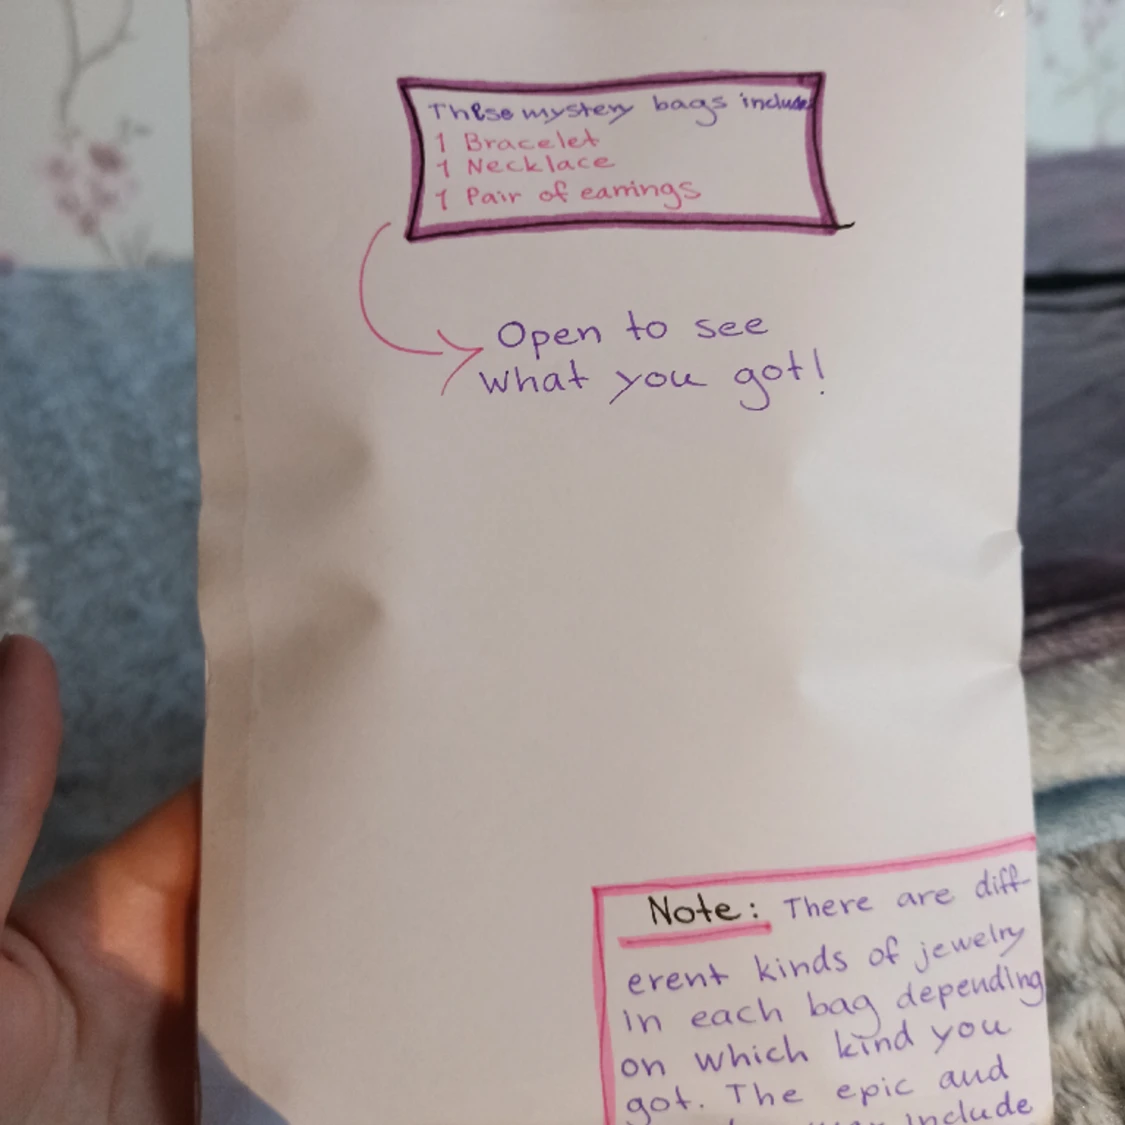 These mystery bags include
1 Bracelet
1 Necklace
1 Pair of earrings
Open to see
what you got!
Note: There are diff-
erent kinds of jewelry
in each bag depending
on which kind you
got. The epic and
include